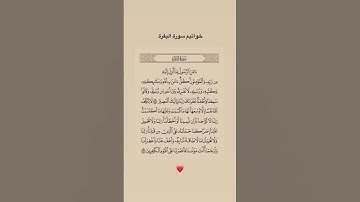 خواتيم سورة البقرة
سورة البقرة
ءَامَنَ ٱلرَّسُولُ بِمَآ أُنزِلَ إِلَيْهِ
مِن رَّبِّهِۦ وَٱلْمُؤْمِنُونَ كُلٌّ ءَامَنَ بِٱللَّهِ وَمَلَٰٓئِكَتِهِۦ
وَكُتُبِهِۦ وَرُسُلِهِۦ لَا نُفَرِّقُ بَيْنَ أَحَدٍ مِّن رُّسُلِهِۦ وَقَالُوا۟
سَمِعْنَا وَأَطَعْنَا غُفْرَانَكَ رَبَّنَا وَإِلَيْكَ ٱلْمَصِيرُ ۝٢٨٥ لَا يُكَلِّفُ
ٱللَّهُ نَفْسًا إِلَّا وُسْعَهَا لَهَا مَا كَسَبَتْ وَعَلَيْهَا مَا ٱكْتَسَبَتْ
رَبَّنَا لَا تُؤَاخِذْنَآ إِن نَّسِينَآ أَوْ أَخْطَأْنَا رَبَّنَا وَلَا تَحْمِلْ
عَلَيْنَآ إِصْرًا كَمَا حَمَلْتَهُۥ عَلَى ٱلَّذِينَ مِن قَبْلِنَا رَبَّنَا
وَلَا تُحَمِّلْنَا مَا لَا طَاقَةَ لَنَا بِهِۦ وَٱعْفُ عَنَّا وَٱغْفِرْ لَنَا
وَٱرْحَمْنَآ أَنتَ مَوْلَىٰنَا فَٱنصُرْنَا عَلَى ٱلْقَوْمِ ٱلْكَٰفِرِينَ ۝٢٨٦